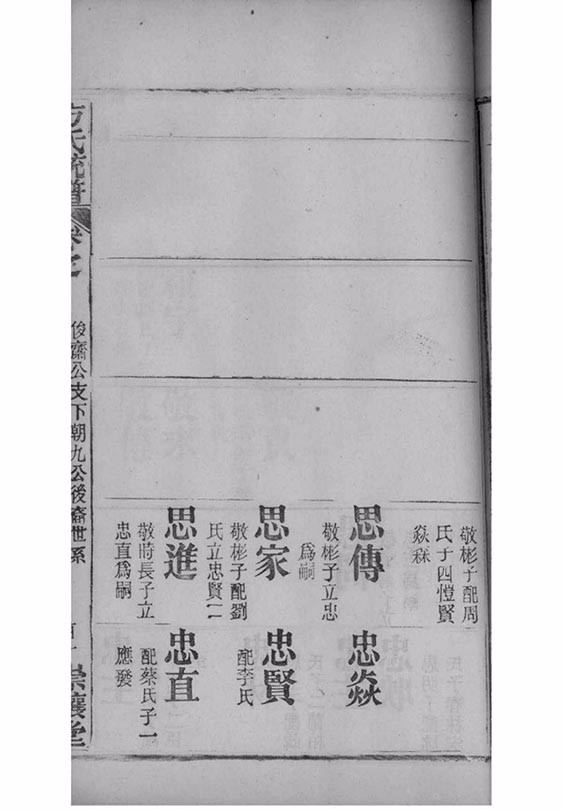 敬彬子配周
氏子四愷賢
焱森
思傳
敬彬子立忠
為嗣
忠焱
思家
敬彬子配劉
氏立忠賢一
忠賢
配李氏
思進
敬時長子立
忠直為嗣
忠直
配蔡氏子一
應發
方氏統譜
卷之
俊齋公支下朝九公後裔世系
崇讓堂